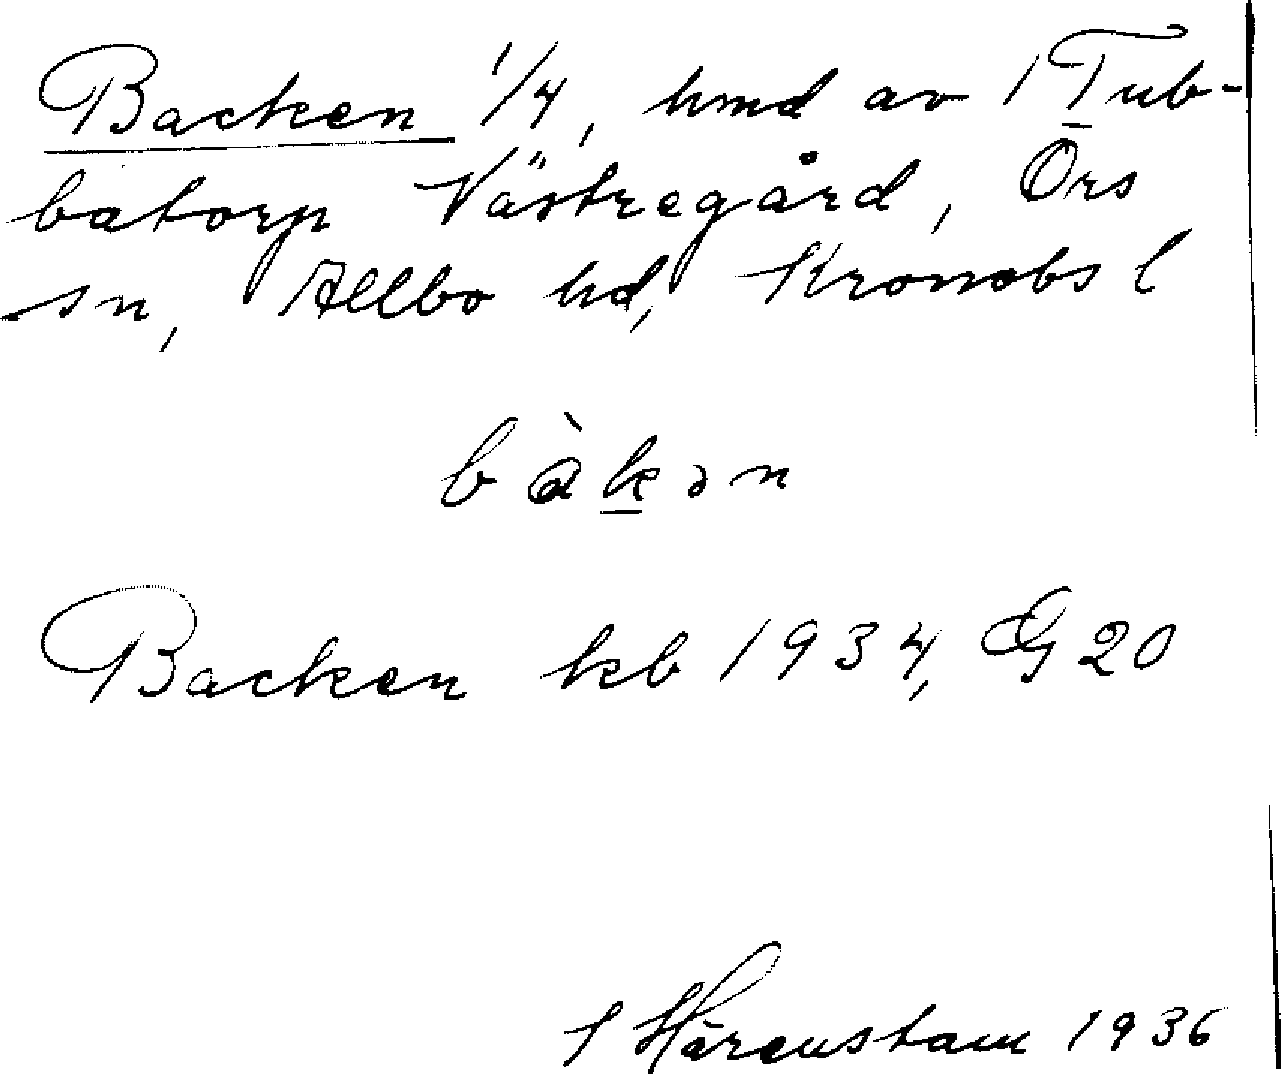 Backen 1/4, hmd av 1 Tub-
batorp Västregård, Örs
sn, Allbo hd, Kronobs l
bàkən
Backen kb 1934, G 20
S Härenstam 1936